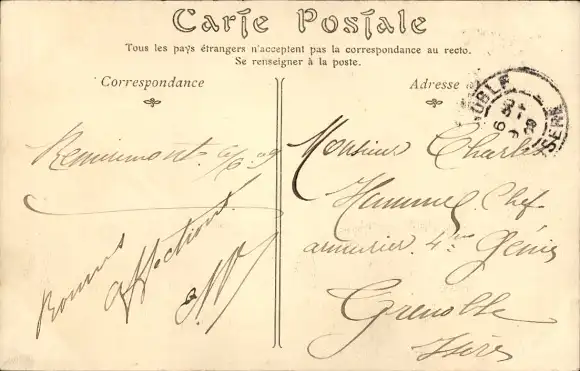 Carte Postale
Tous les pays étrangers n'acceptent pas la correspondance au recto.
Se renseigner à la poste.
Correspondance
Adresse
Remiremont
Bonnes
affections
Monsieur Charles
Hammel Chef
armurier 4me Génie
Grenoble
Isère